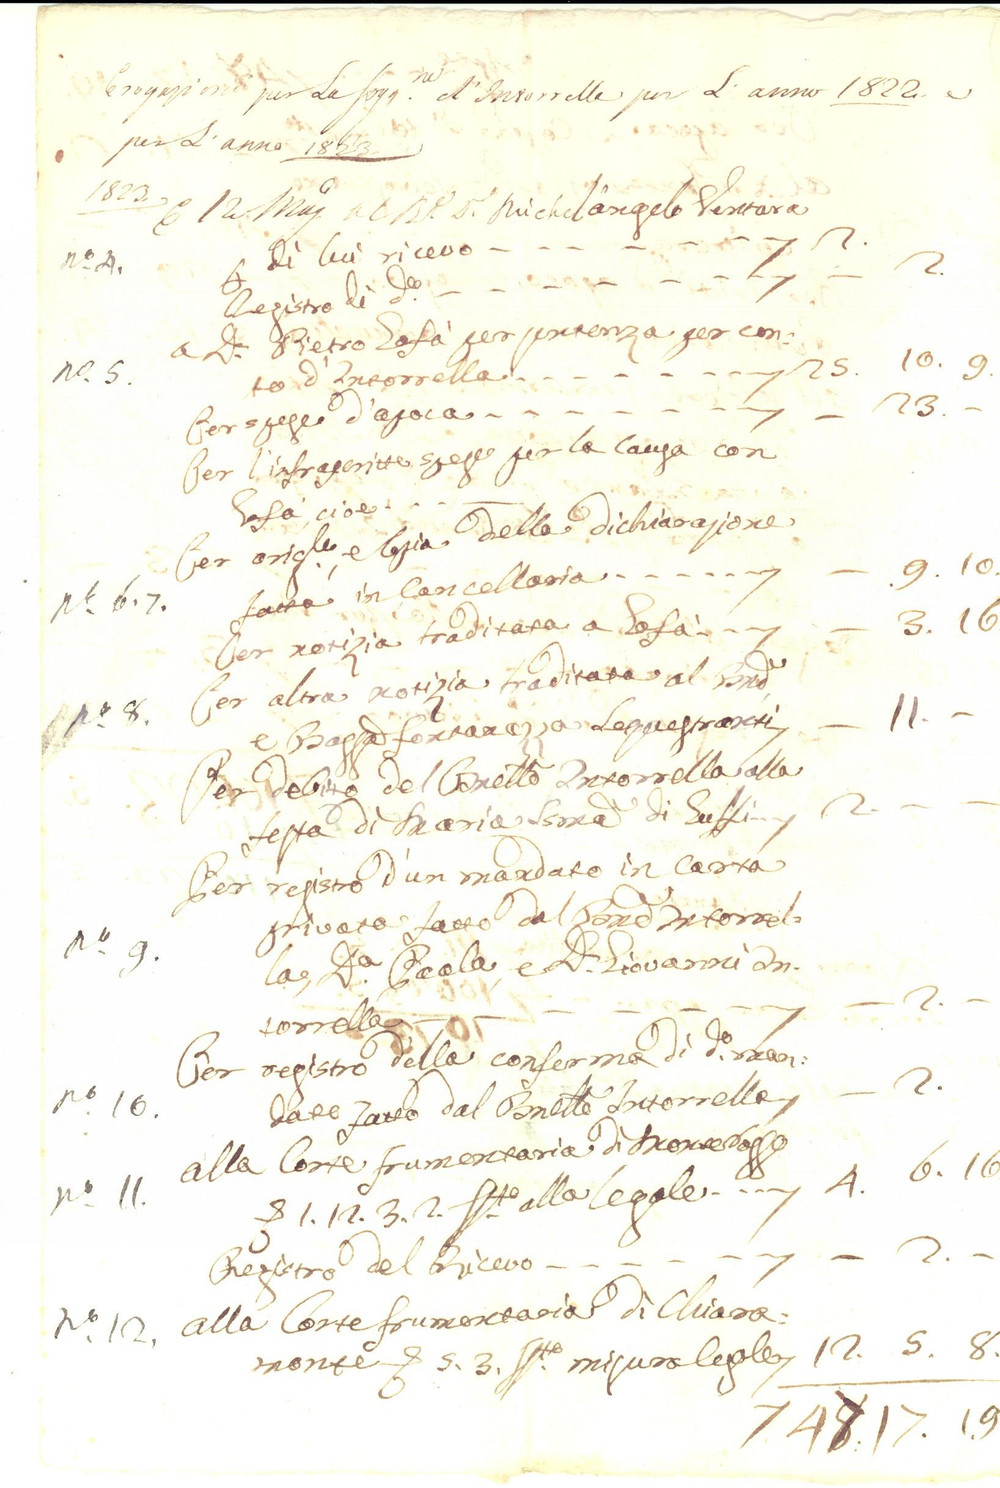 Erogazioni per La Sogg.ne d'Intorrella per L'anno 1822. e
per L'anno 1823.
1823. E 12 Mag. al Rl. Dr. Michelangelo Ventura
no. 4. di lui ricevo - - - - - - - 7 2.
Registro di do. - - - - - - - 7 - 2.
a Dn. Pietro Cafà per sentenza per con:
no. 5. to d'Intorrella - - - - - - 7 25. 10. 9.
Per spese d'apoca - - - - - - 7 - 23. -
Per l'infrascritte spese per la causa con
Cafà, cioe - - -
Per origle. e Copia della dichiarazione
no. 6. 7. fatta in Cancellaria - - - - - - 7 - 9. 10.
Per notizia traditata a Cafà - - 7 - 3. 16
no. 8. Per altra notizia traditata al Bnd.
e Fontanazza Sequestranti 7 - 11. -
Per debito del Bnello Intorrella alla
testa di Maria di - - 7 2. - -
Per registro d'un mandato in carta
privata fatto dal Intorrel:
no. 9. la, Da. Paola, e Dn. Giovanni In:
torrella - - - - - - - 7 - 2. -
Per registro della conferma di do. man:
no. 10. dato fatto dal Bnello Intorrella 7 - 2.
alla Corte frumentaria di
no. 11. 1. 12. 3. 2. alla legale - - - 7 4. 6. 16
Registro del Ricevo - - - - - - 7 - 2. -
no. 12. alla Corte frumentaria di Chiara:
monte 5. 3. misura legale 7 12. 5. 8.
7 48. 17. 19